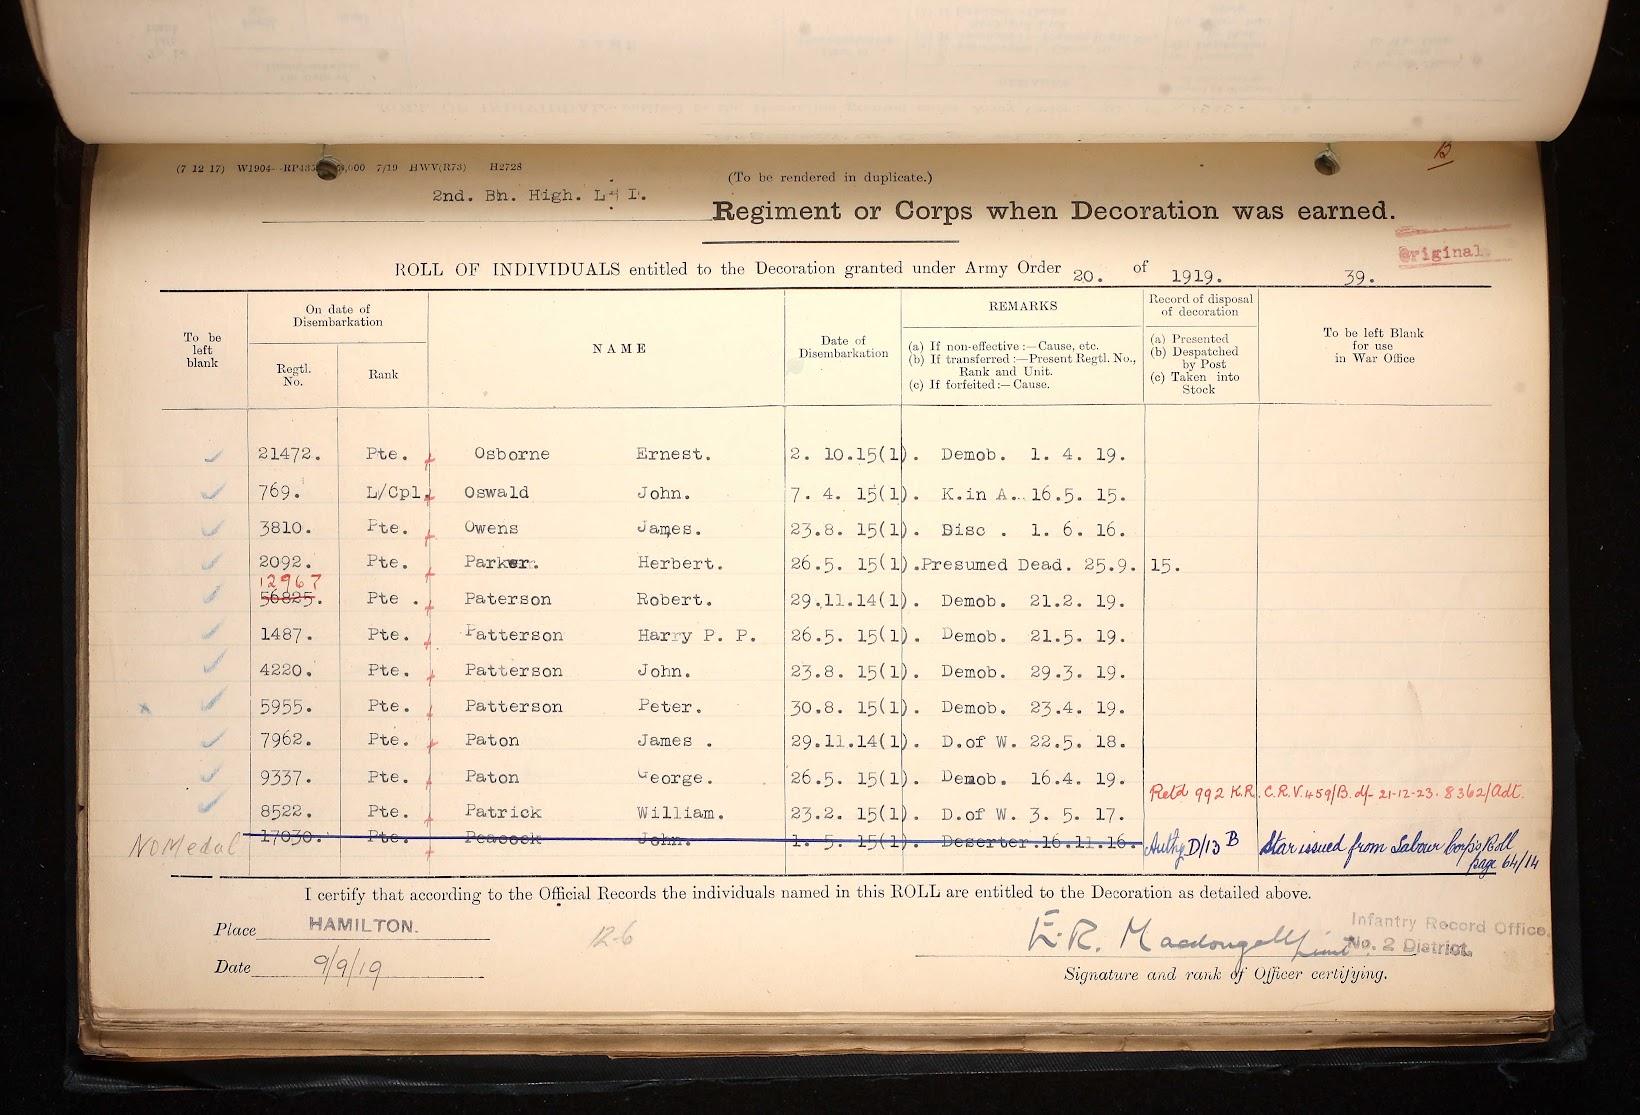 (7 12 17) W1904- RP43 ,000 7/19 HWV(R73) H2728
(To be rendered in duplicate.)
2nd. Bn. High. L I.
Regiment or Corps when Decoration was earned.
Original
ROLL OF INDIVIDUALS entitled to the Decoration granted under Army Order 20. of 1919. 39.
To be left blank
On date of Disembarkation
Regtl. No.
Rank
NAME
Date of Disembarkation
REMARKS
(a) If non-effective :—Cause, etc.
(b) If transferred :—Present Regtl. No., Rank and Unit.
(c) If forfeited :—Cause.
Record of disposal of decoration
(a) Presented
(b) Despatched by Post
(c) Taken into Stock
To be left Blank for use in War Office
21472. Pte. Osborne Ernest. 2. 10.15(1). Demob. 1. 4. 19.
769. L/Cpl. Oswald John. 7. 4. 15(1). K.in A. 16.5. 15.
3810. Pte. Owens James. 23.8. 15(1). Disc . 1. 6. 16.
2092. Pte. Parker. Herbert. 26.5. 15(1).Presumed Dead. 25.9. 15.
12967
56825. Pte . Paterson Robert. 29.11.14(1). Demob. 21.2. 19.
1487. Pte. Patterson Harry P. P. 26.5. 15(1). Demob. 21.5. 19.
4220. Pte. Patterson John. 23.8. 15(1). Demob. 29.3. 19.
5955. Pte. Patterson Peter. 30.8. 15(1). Demob. 23.4. 19.
7962. Pte. Paton James . 29.11.14(1). D.of W. 22.5. 18.
9337. Pte. Paton George. 26.5. 15(1). Demob. 16.4. 19.
Retd 992 K.R. C.R.V.459/B. d/- 21-12-23. 8362/Adt.
8522. Pte. Patrick William. 23.2. 15(1). D.of W. 3. 5. 17.
No Medal 17030. Pte. Peacock John. 1. 5. 15(1). Deserter.16.11.16. Authy D/13 B Star issued from Labour Corps Roll
page 64/14
I certify that according to the Official Records the individuals named in this ROLL are entitled to the Decoration as detailed above.
Place HAMILTON.
12-6
E.R. Macdougall
Infantry Record Office.
No. 2 District.
Date 9/9/19
Signature and rank of Officer certifying.